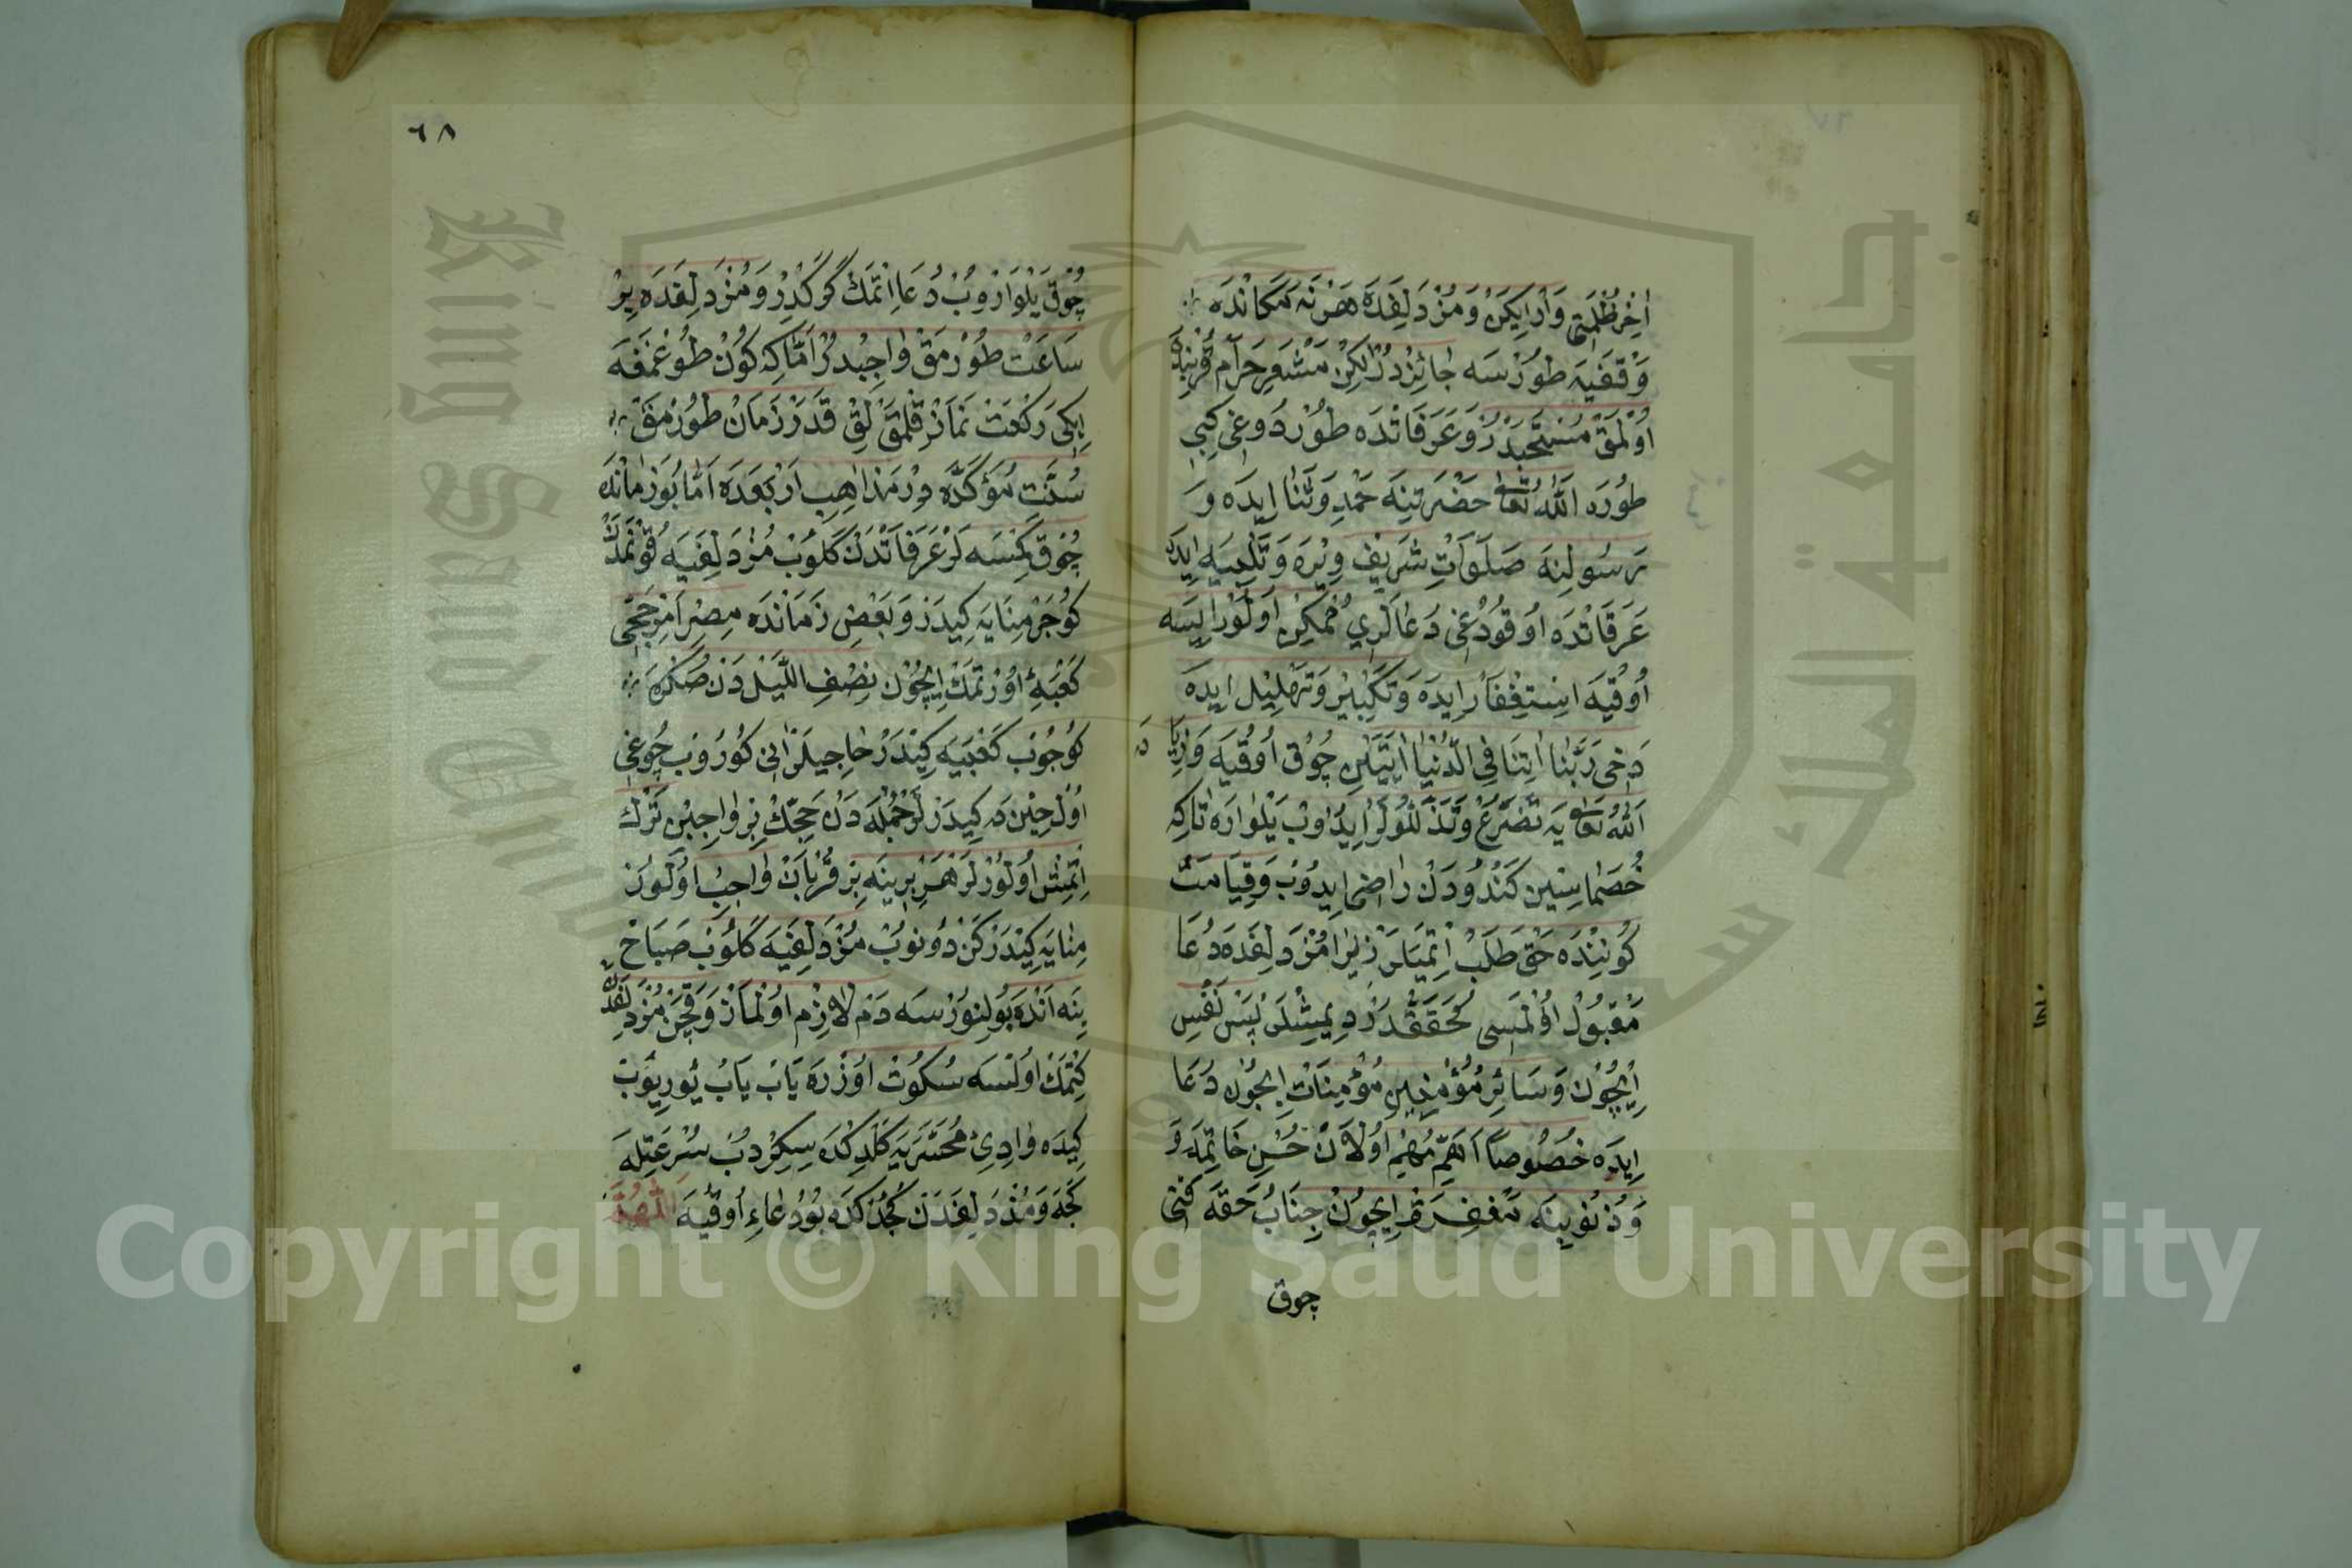 اٰخِرِ ظُلْمَتِى وَارْاِيكَنْ وَمُزْدَلِفَدَه هَرْنَه مَكَانْدَه
وَقْفَيَه طُورْسَه جَائِزْدُرْ لٰكِنْ مَشْعَرِ حَرَامْ قُرْبِنْدَه
اُوْلْمَقْ مُسْتَحَبْدُرْ وَعَرَفَاتْدَه طُورْدُوغِى كِبِى
طُورَه اَللّٰهُ تَعَالٰى حَضْرَتِنَه حَمْدِ وَثَنَا اِيدَه وَ
رَسُولِنَه صَلَوَاتِ شَرِيفْ وِيْرَه وَتَلْبِيَه اِيدَه
عَرَفَاتْدَه اُوقُودُغِى دُعَالَرِى مُمْكِنْ اُولُورْاِيسَه
اُوقُيَه اِسْتِغْفَارْ اِيدَه وَتَكْبِيرْ وَتَهْلِيلْ اِيدَه
دَخِى رَبَّنَا اٰتِنَا فِى الدُّنْيَا اٰيَتِنْ چُوقْ اُوقُيَه وَاَرِيَا دَه
اَللّٰهُ تَعَالٰى يَه تَضَرُّعْ وَتَذَلُّلْلَرْ اِيدُوبْ يَلْوَارَه تَاكِه
خُصَمَاسِينْ كَنْدُودَنْ رَاضِى اِيدُوبْ وَقِيَامَتْ
كُونِنْدَه حَقْ طَلَبْ اِتْمَيَلَرْ زِيرَا مُزْدَلِفَدَه دُعَا
مَقْبُولْ اُوْلْمَسِى مُحَقَّقْدُرْ دِيمِشْلَرْ پَسْ نَفْسِى
اِيچُونْ وَسَائِرْ مُؤْمِنِينْ مُؤْمِنَاتْ اِيچُونْ دُعَا
اِيدَه خُصُوصًا اَهَمِّ مُهِمْ اُولَانْ حُسْنِ خَاتِمَه وَ
وَذُنُوبِنَه مَغْفِرَتْ اِيچُونْ جِنَابُ حَقَه
چوق
٦٨
چُوقْ يَلْوَارُوبْ دُعَا اِتْمَكْ كَرَكْدُرْ وَمُزْدَلِفَدَه بِرْ
سَاعَتْ طُورْمَقْ وَاجِبْدُرْ اَمَّا كِه كُونْ طُوغْمَغَه
اِيكِى رَكْعَتْ نَمَازْ قِلْمَقْلِقْ قَدَرْ زَمَانْ طُورْمَقْ
سُنَّتِ مُؤَكَّدَه دِرْ مَذَاهِبِ اَرْبَعَدَه اَمَّا بُو زَمَانْدَه
چُوقْ كِمْسَه لَرْ عَرَفَاتْدَنْ كَلُوبْ مُزْدَلِفَيَه قُونْمَدَنْ
كُوچَرْ مِنَايَه كِيدَرْ وَبَعْضِ زَمَانْدَه مِصِرْ اَمِيرْحَجِّى
كَعْبَه اُورْتْمَكْ اِيچُونْ نِصْفِ اللَّيْلْ دَنْ صُكْرَه
كُوچُوبْ كَعْبَيَه كِيدَرْ حَاجِيلَرْ اٰنِى كُورُوبْ چُوغِى
اُولْ حِينْ دَه كِيدَرْلَرْ جُمْلَه دَنْ حَجِّكْ بِرْ وَاجِبِنْ تَرْكْ
اِتْمِشْ اُولُورْلَرْ هَرْ بِرِينَه بِرْ قُرْبَانْ وَاجِبْ اُولُورْ
مِنَايَه كِيدَرْكَنْ دُونُوبْ مُزْدَلِفَيَه كَلُوبْ صَبَاحْ
يِنَه اَنْدَه بُولِنُورْسَه دَمْ لَازِمْ اُولْمَازْ وَقَچَنْ مُزْدَلِفَدَنْ
كِتْمَكْ اُولْسَه سُكُوتْ اُوزْرَه يَابْ يَابْ يُورِيُوبْ
كِيدَه وَادِىِ مُحَسَّرَه كَلْدِكْدَه سِكِرْدُبْ سُرْعَتْلَه
كَچَه وَمُزْدَلِفَدَنْ كُچْدُكْدَه بُو دُعَاءِ اُوقُيَه اَللّٰهُمَّ